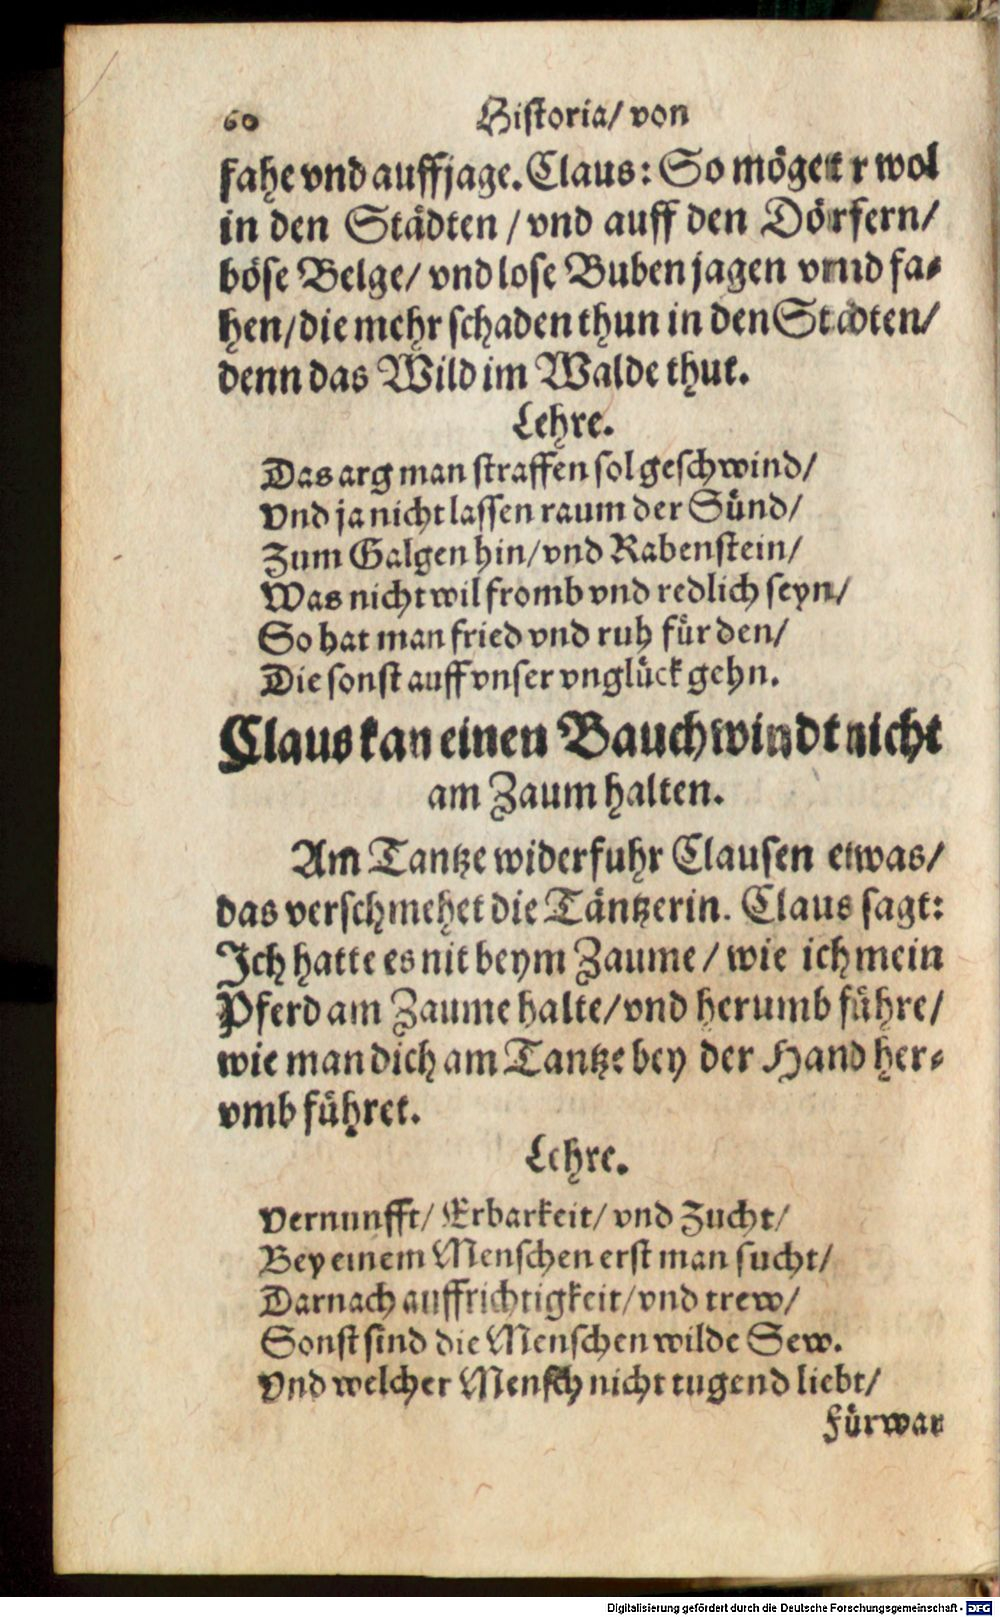 60 Historia/ von
fahe vnd auffjage. Claus: So möget r wol
in den Städten / vnd auff den Dörfern/
böse Belge/ vnd lose Buben jagen vnnd fa-
hen/ die mehr schaden thun in den Städten/
denn das Wild im Walde thut.
Lehre.
Das arg man straffen sol geschwind/
Vnd ja nicht lassen raum der Sünd/
Zum Galgen hin/ vnd Rabenstein/
Was nicht wil fromb vnd redlich seyn/
So hat man fried vnd ruh für den/
Die sonst auff vnser vnglück gehn.
Claus kan einen Bauchwindt nicht
am Zaum halten.
Am Tantze widerfuhr Clausen etwas/
das verschmehet die Täntzerin. Claus sagt:
Ich hatte es nit beym Zaume / wie ich mein
Pferd am Zaume halte/ vnd herumb führe/
wie man dich am Tantze bey der Hand her-
vmb führet.
Lehre.
Vernunfft/ Erbarkeit/ vnd Zucht/
Bey einem Menschen erst man sucht/
Darnach auffrichtigkeit/ vnd trew/
Sonst sind die Menschen wilde Sew.
Vnd welcher Mensch nicht tugend liebt/
Fürwar
Digitalisierung gefördert durch die Deutsche Forschungsgemeinschaft - DFG